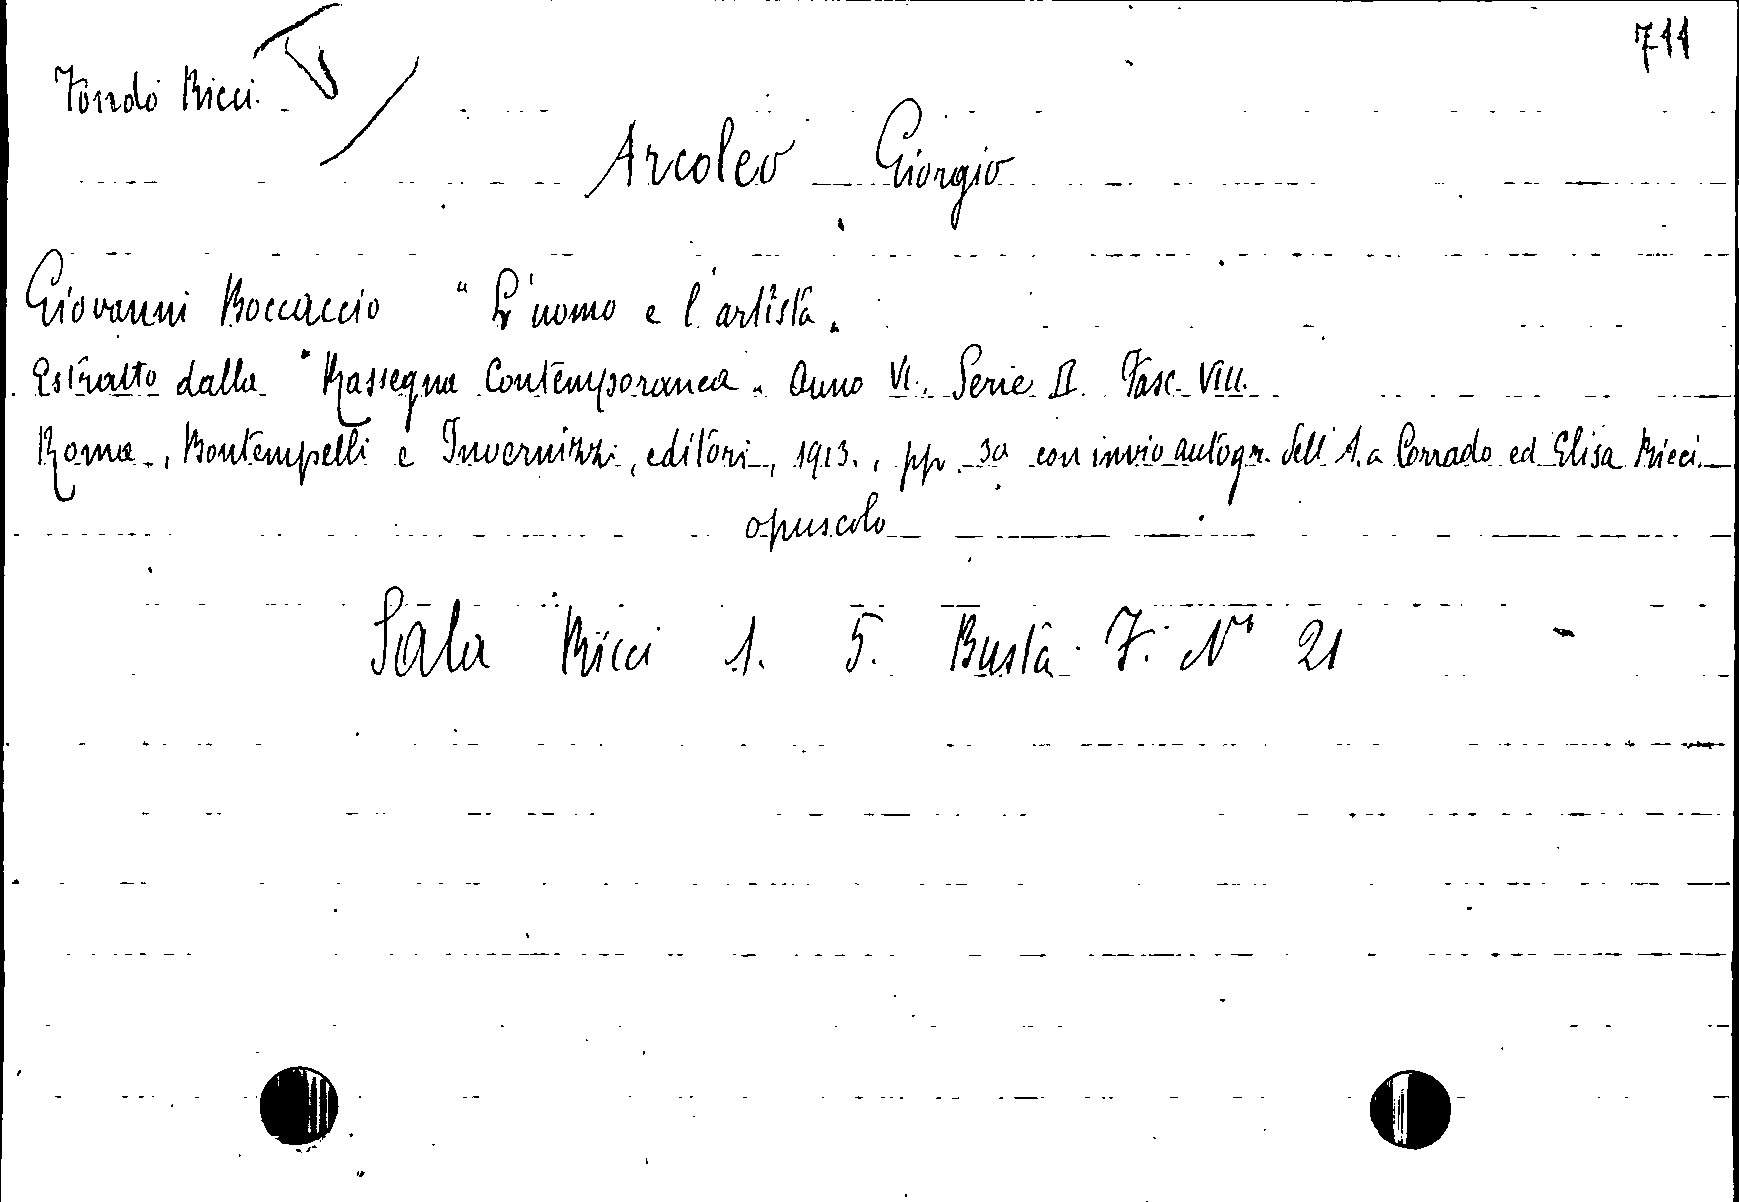 711
Fondo Ricci.
Arcoleo Giorgio
Giovanni Boccaccio "L'uomo e l'artista„
Estratto dalla "Rassegna Contemporanea„ Anno VI. Serie II. Fasc. VIII.
Roma, Bontempelli e Invernizzi, editori, 1913., pp. 30 con invio autogr. dell'A. a Corrado ed Elisa Ricci.
opuscolo
Sala Ricci 1. 5. Busta F. N° 21